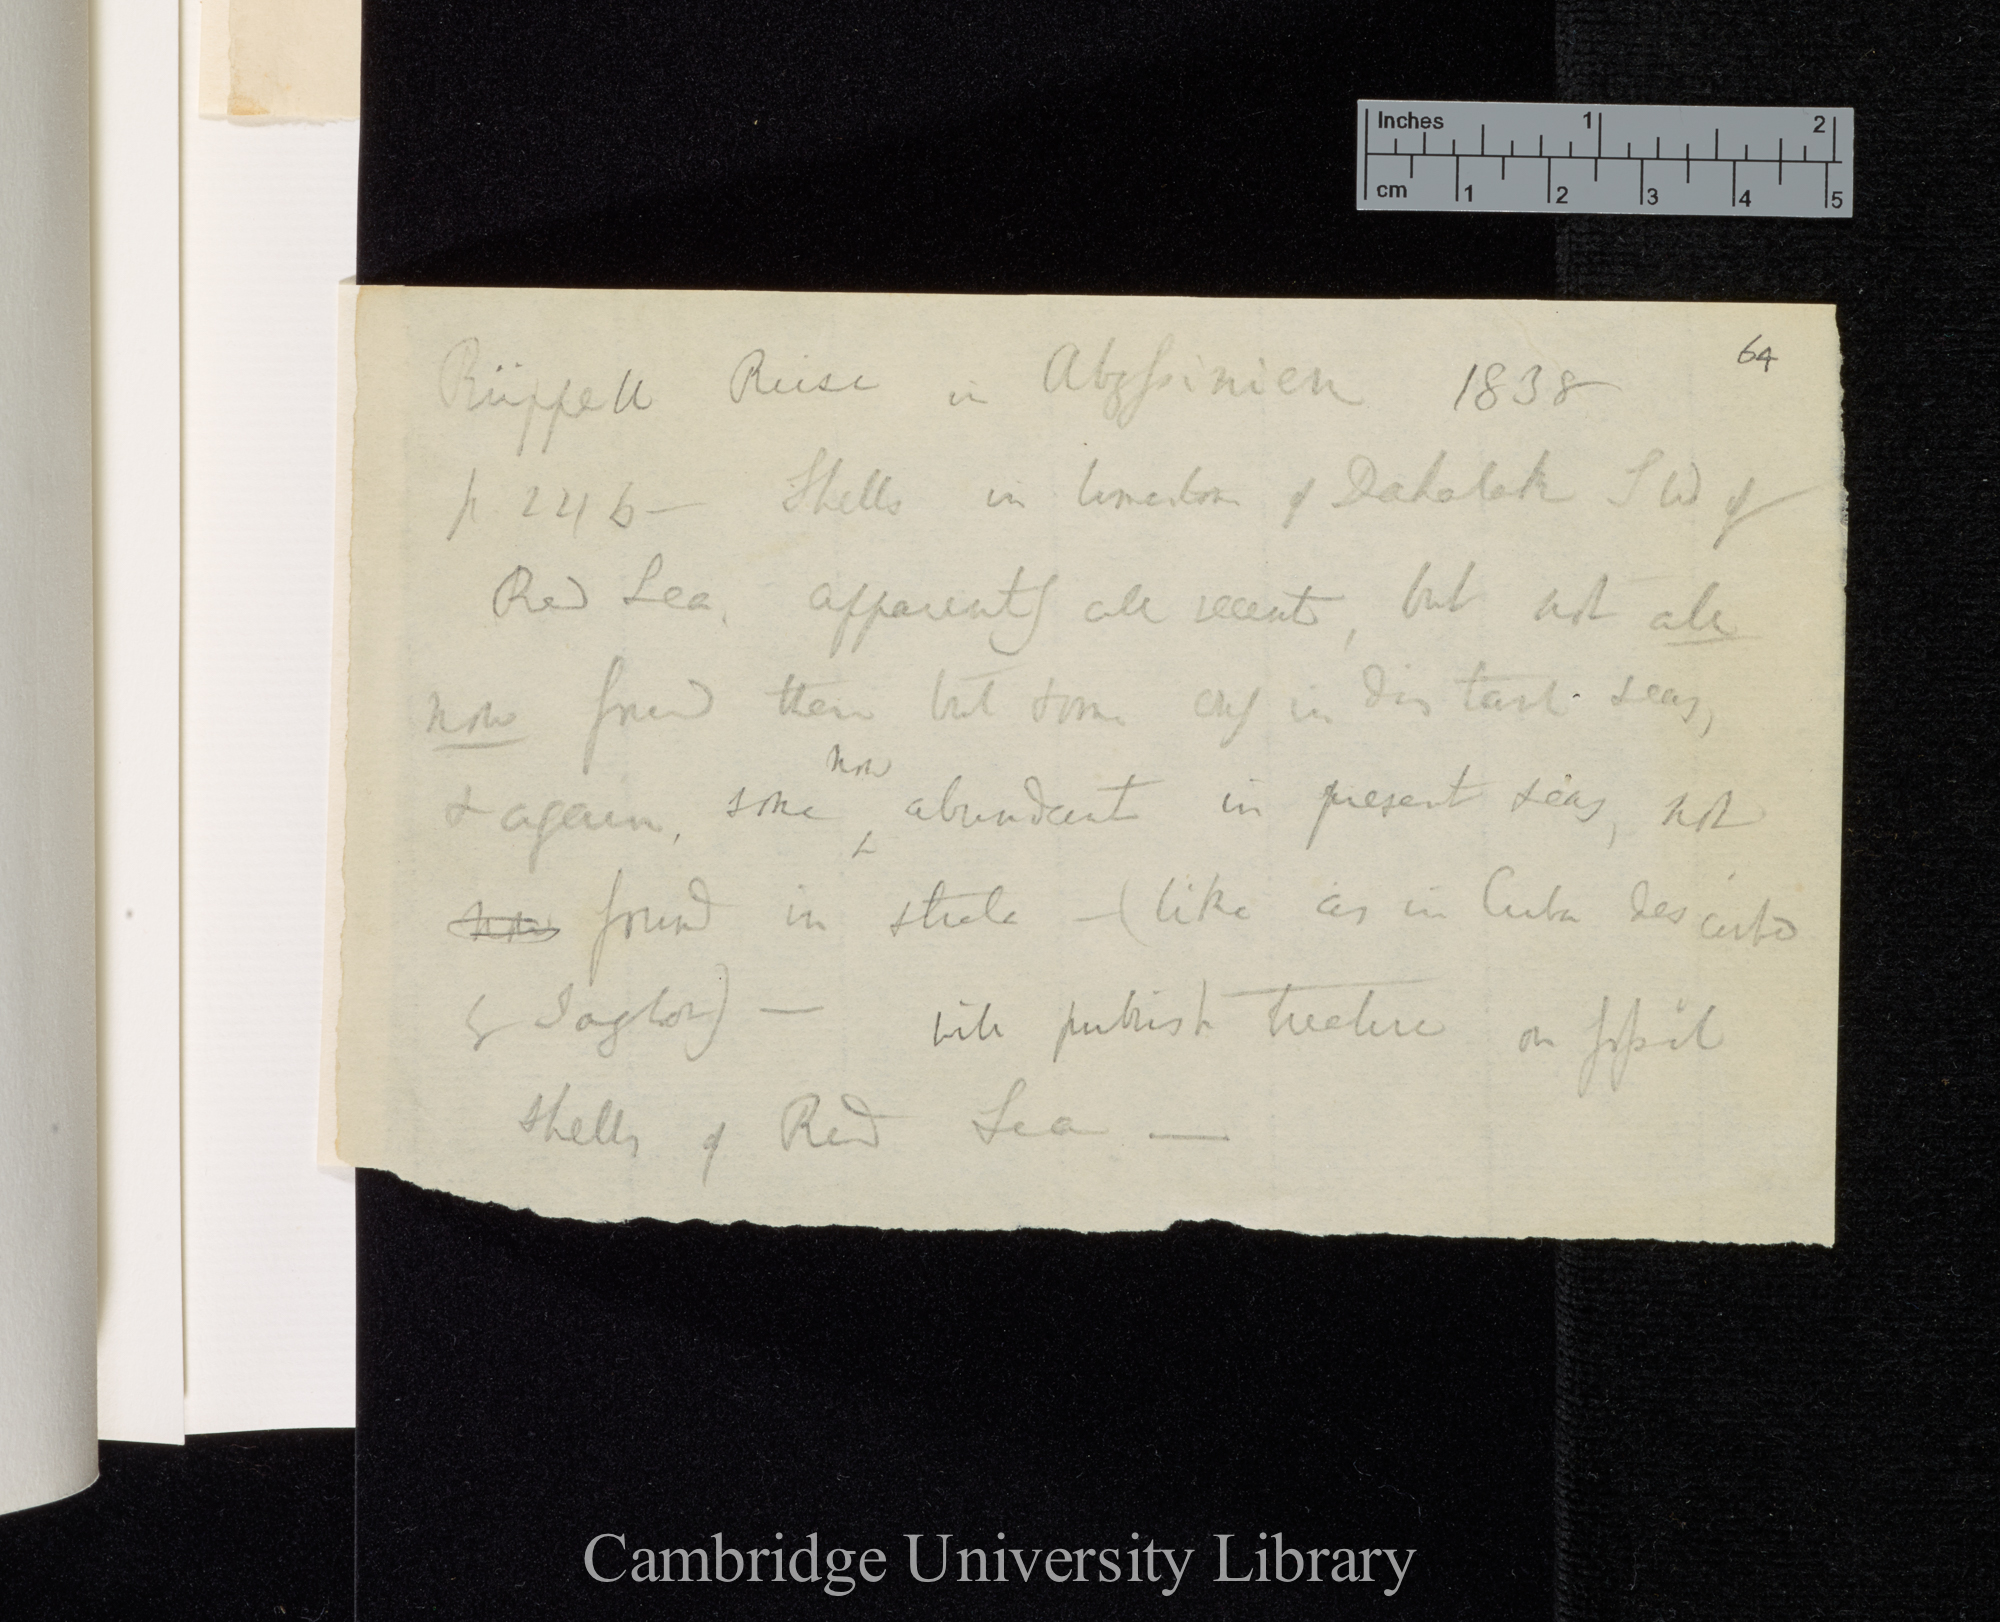 Inches 1 2
cm 1 2 3 4 5
64
Rüppell Reise in Abyssinien 1838
p. 246 — Shells in limestone of Dahalak S W of
Red Sea, apparently all recent, but not all
now found there but some only in distant seas,
& again, some now abundant in present seas, not
now found in strata — (like as in Cuba described
by Taylor) — will publish treatise on fossil
shells of Red Sea —
Cambridge University Library